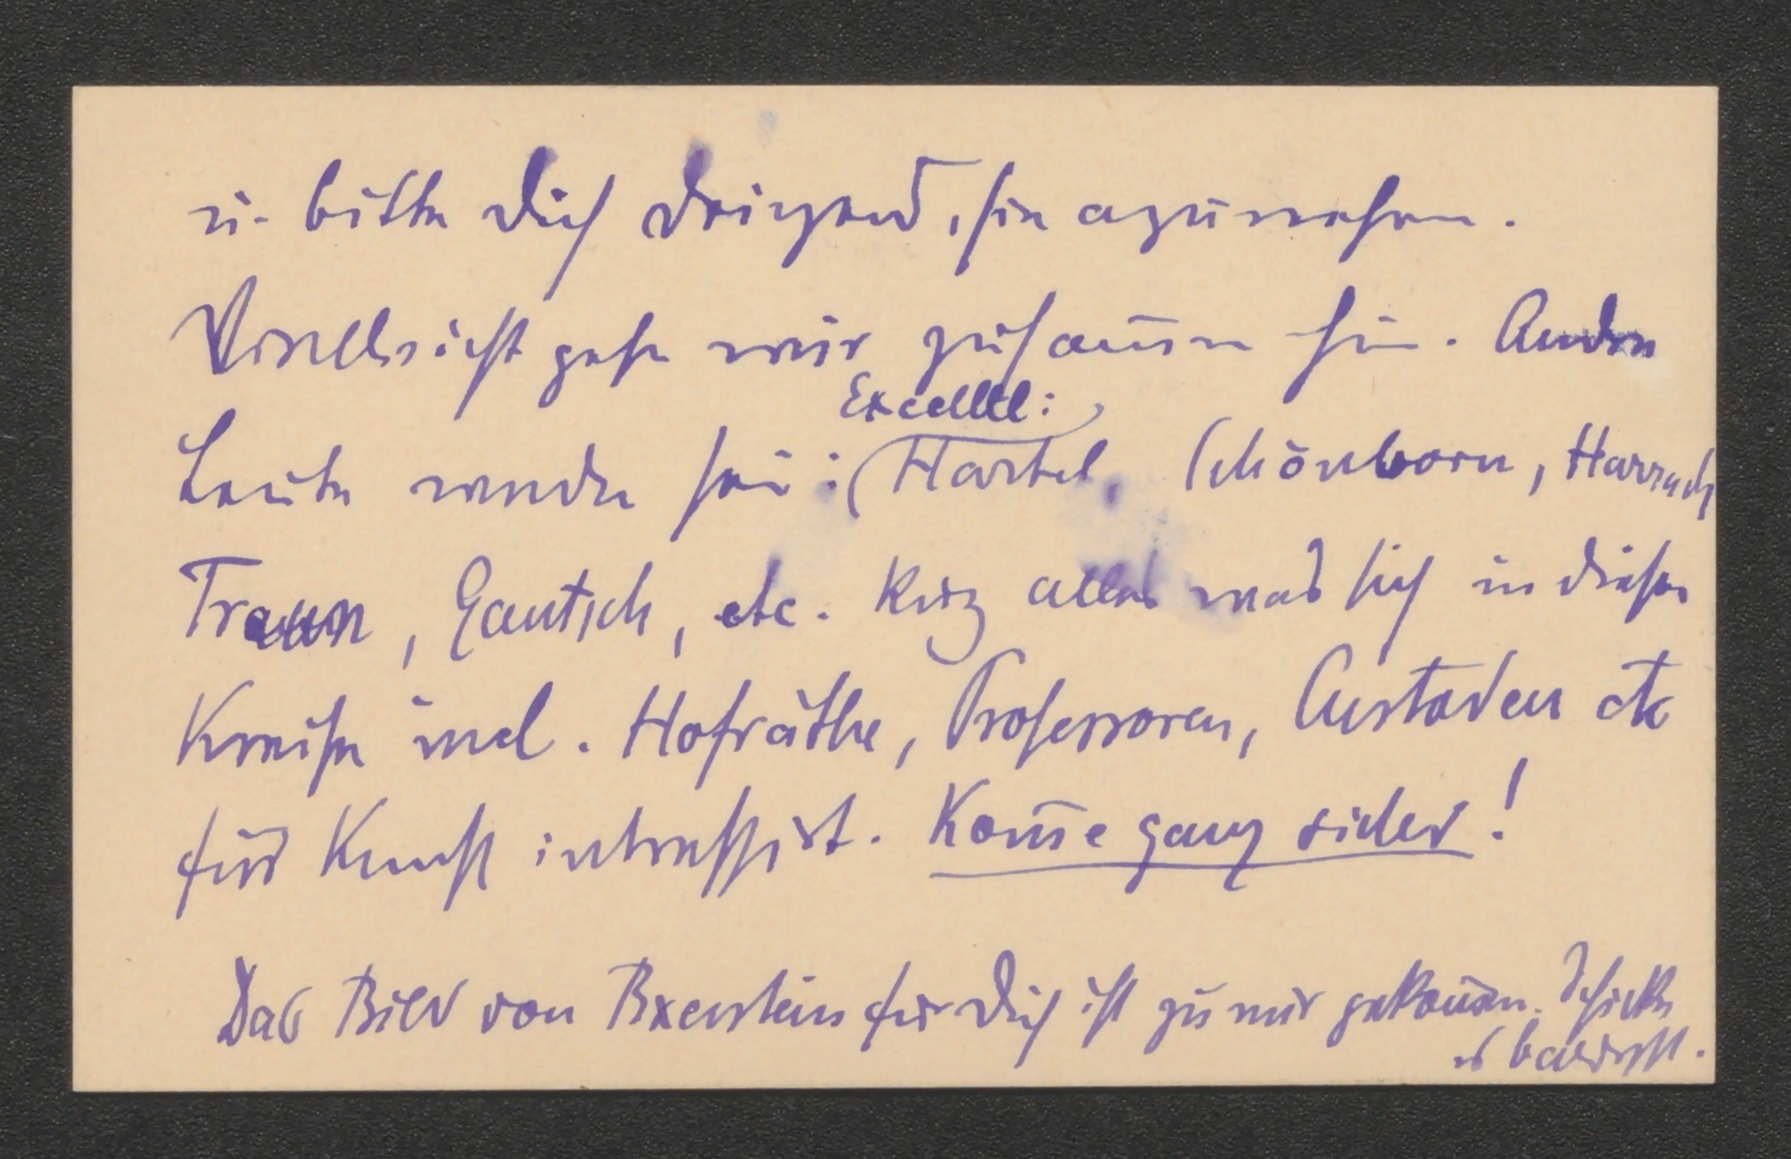 u. bitte Dich dringend, sie azunehmen.
Vielleicht gehen wir zusam̅en hin. Andre
Excell:
Leute werden sein: (Hartel, Schönborn, Harrach
Traun, Gautsch, etc. Kurz alles was sich in diesen
Kreisen incl. Hofräthe, Professoren, Custoden etc
für Kunst interessirt. Kom̅e ganz sicher!
Das Bild von für Dich ist zu mir gekom̅en. Schicke
es baldigst.